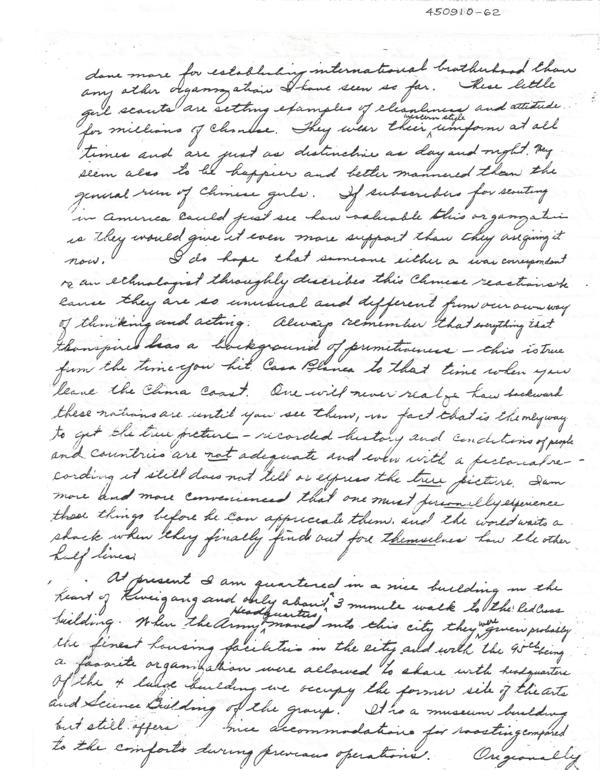 450910-62
done more for establishing international brotherhood than
any other organization I have seen so far. These little
girl scouts are setting examples of cleanliness and attitude
for millions of Chinese. They wear their western style uniform at all
times and are just as distinctive as day and night. They
seem also to be happier and better mannered than the
general run of Chinese girls. If subscribers for scouting
in America could just see how valuable this organization
is they would give it even more support than they are giving it
now. I do hope that someone either a war correspondent
or an ethnologist throughly describes this Chinese reactions be
cause they are so unusual and different from our own way
of thinking and acting. Always remember that everything that
transpires has a background of primitiveness – this is true
from the time you hit Casa Blanca to that time when you
leave the China Coast. One will never realize how backward
these nations are until you see them, in fact that is the only way
to get the true picture – recorded history and conditions of people
and countries are not adequate and even with a pictorial re-
cording it still does not tell or express the true picture. I am
more and more convenienced that one must personally experience
these things before he can appreciate them and the world waits a
shock when they finally finds out fore themselves how the other
half lives.
At present I am quartered in a nice building in the
heart of and only about 3 minute walk to the Red Cross
building. When the Army Headquarters moved into this city they were given probably
the finest housing facilities in the city and with the being
a favorite organization were allowed to share with headquarters
Of the 4 large building we occupy the former site of the Arts
and Science Building of the group. It is a museum building
but still offers nice accommodations for roosting compared
to the comforts during previous operations. Origionally